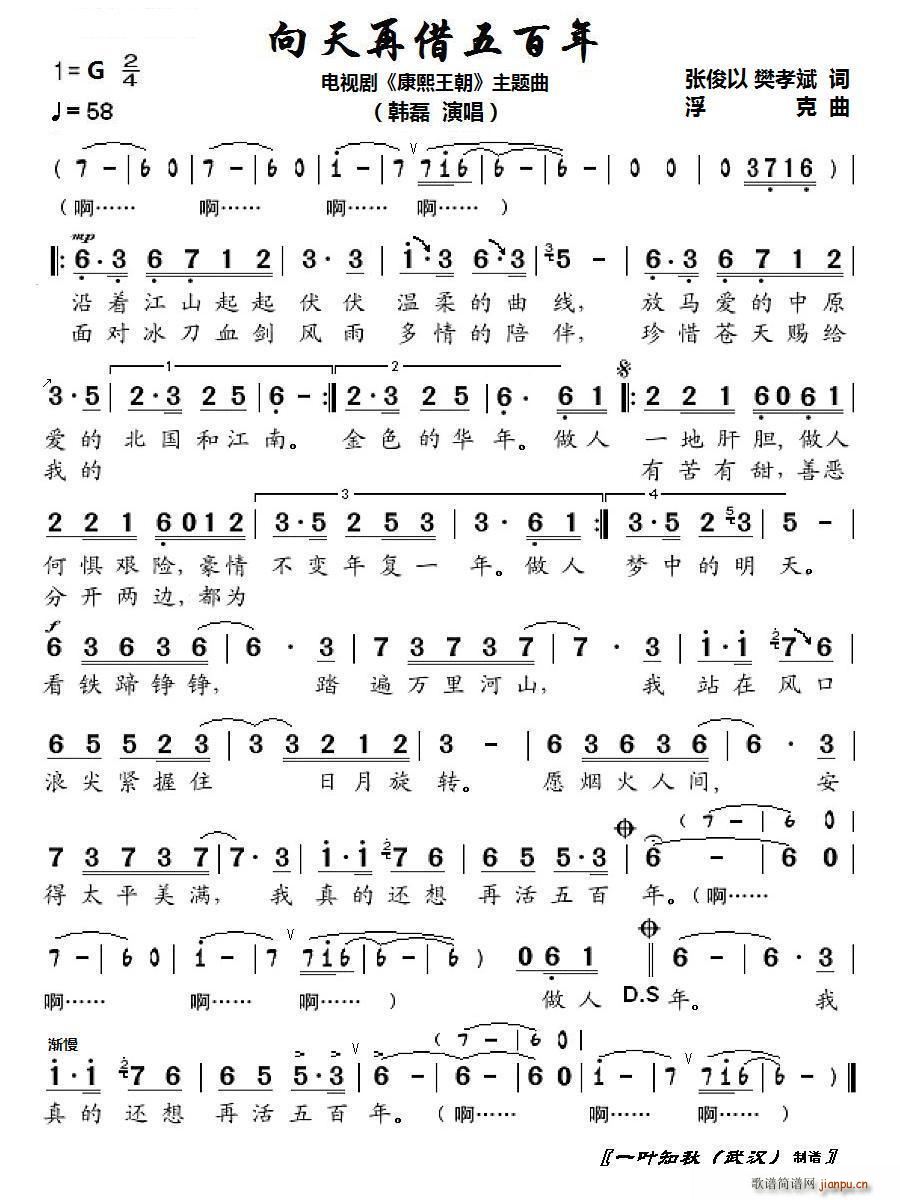 向天再借五百年
1=G 2/4
电视剧《康熙王朝》主题曲
张俊以 樊孝斌 词
♩=58
（韩磊 演唱）
浮 克 曲
( 7 - | 6 0 | 7 - | 6 0 | i - | 7 7i6 | 6 - | 6 - | 0 0 | 0 3716 ) |
（啊…… 啊…… 啊…… 啊……）
mp
‖: 6·3 6 7 1 2 | 3·3 | i·3 6·3 | 3 5 - | 6·3 6 7 1 2 |
沿着江山起起伏伏 温柔的曲线， 放马爱的中原
面对冰刀血剑风雨 多情的陪伴， 珍惜苍天赐给
1 2
3·5 | 2·3 2 5 | 6 - :‖ 2·3 2 5 | 6· 6 1 ‖: 2 2 1 6061 |
爱的 北国和江南。 金色的华年。做人 一地肝胆，做人
我的 有苦有甜，善恶
3 4
2 2 1 6012 | 3·5 2 5 3 | 3· 6 1 :‖ 3·5 2 5 3 | 5 - |
何惧艰险，豪情 不变年复一年。做人 梦中的明天。
分开两边，都为
f
6 3 6 3 6 | 6 · 3 | 7 3 7 3 7 | 7 · 3 | i·i 2 7 6 |
看铁蹄铮铮， 踏遍万里河山， 我站在风口
6 5 5 2 3 | 3 3 2 1 2 | 3 - | 6 3 6 3 6 | 6 · 3 |
浪尖紧握住 日月旋转。 愿烟火人间， 安
( 7 - | 6 0 |
7 3 7 3 7 | 7· 3 | i·i 2 7 6 | 6 5 5·3 | 6 - | 6 0 |
得太平美满， 我真的还想再活五百年。（啊……
7 - | 6 0 | i - | 7 7i6 | 6 - | 6 ) | 0 6 1 ‖ 6 - | 6·3 |
啊…… 啊…… 啊……） 做人 D.S 年。 我
渐慢 ( 7 - | 6 0 |
i·i 2 7 6 | 6 5 5·3 | 6 - | 6 - | 6 0 | i - | 7 7i6 | 6 - ) ‖
真的还想再活五百年。（啊…… 啊…… 啊……）
〖一叶知秋（武汉）制谱〗
歌谱简谱网
jianpu.cn